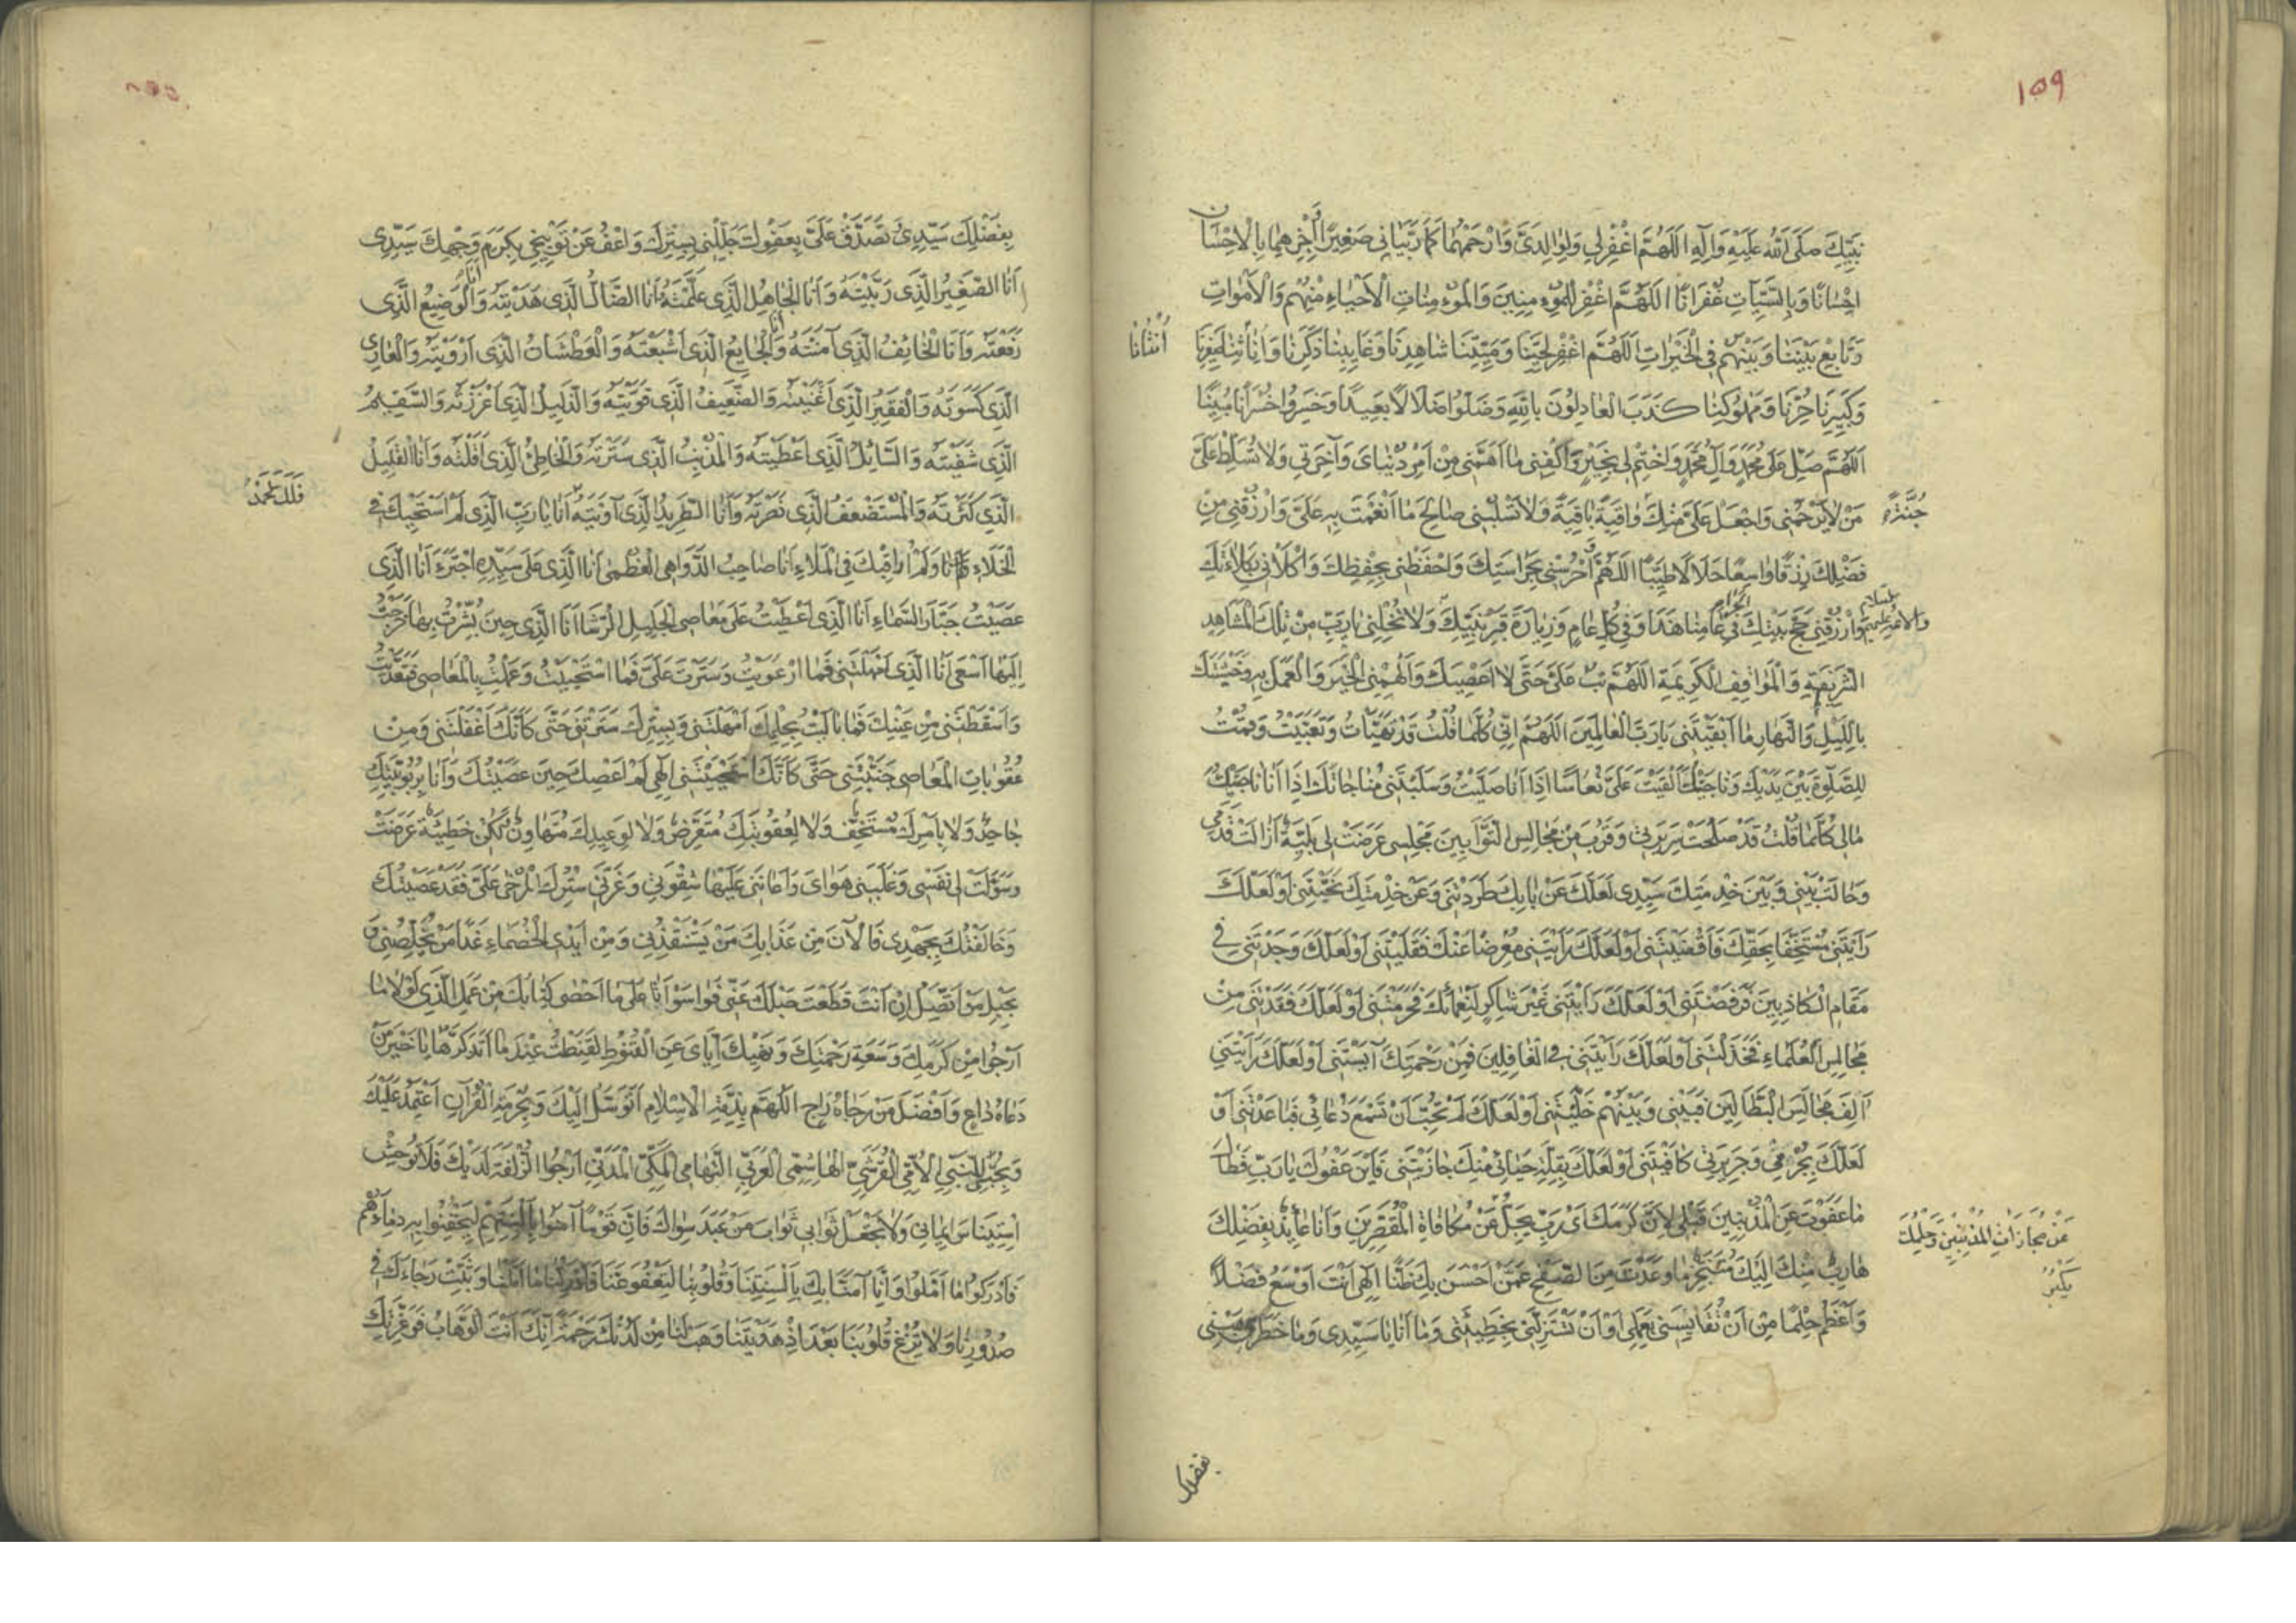 ١٥٩
نَبِيِّكَ صَلَّى اللهُ عَلَيْهِ وَآلِهِ اَللّهُمَّ اغْفِرْلي وَلِوالِدَيَّ وَارْحَمْهُما كَما رَبَّيانِي صَغِيرًا وَاجْزِهِما بِالْاِحْسَانِ
اِحْسَانًا وَبِالسَّيِّئَاتِ غُفْرَانًا اَللّهُمَّ اغْفِرْ لِلْمُؤْمِنِينَ وَالْمُؤْمِنَاتِ الْاَحْيَاءِ مِنْهُمْ وَالْاَمْوَاتِ
وَتَابِعْ بَيْنَنَا وَبَيْنَهُمْ فِي الْخَيْرَاتِ اَللّهُمَّ اغْفِرْ لِحَيِّنَا وَمَيِّتِنَا شَاهِدِنَا وَغَايِبِنَا ذَكَرِنَا وَاِنَاثِنَا صَغِيرِنَا
اُنْثَانَا
وَكَبِيرِنَا حُرِّنَا وَمَمْلُوكِنَا كَذَبَ الْعَادِلُونَ بِاللهِ وَضَلُّوا ضَلَالًا بَعِيدًا وَخَسِرُوا خُسْرَانًا مُبِينًا
اَللّهُمَّ صَلِّ عَلَى مُحَمَّدٍ وَآلِ مُحَمَّدٍ وَاخْتِمْ لِي بِخَيْرٍ وَاكْفِنِي مَا اَهَمَّنِي مِنْ اَمْرِ دُنْيَايَ وَآخِرَتِي وَلَا تُسَلِّطْ عَلَيَّ
مَنْ لَا يَرْحَمُنِي وَاجْعَلْ عَلَيَّ مِنْكَ وَاقِيَةً بَاقِيَةً وَلَا تَسْلُبْنِي صَالِحَ مَا اَنْعَمْتَ بِهِ عَلَيَّ وَارْزُقْنِي مِنْ
فَضْلِكَ رِزْقًا وَاسِعًا حَلَالًا طَيِّبًا اَللّهُمَّ احْرُسْنِي بِحَرَاسَتِكَ وَاحْفَظْنِي بِحِفْظِكَ وَاكْلَأْنِي بِكِلَاءَتِكَ
وَارْزُقْنِي حَجَّ بَيْتِكَ الْحَرَامِ فِي عَامِنَا هَذَا وَفِي كُلِّ عَامٍ وَزِيَارَةَ قَبْرِ نَبِيِّكَ وَلَا تُخْلِنِي يَا رَبِّ مِنْ تِلْكَ الْمَشَاهِدِ
وَالْاَئِمَّةِ عَلَيْهِمُ السَّلَامُ
الشَّرِيفَةِ وَالْمَوَاقِفِ الْكَرِيمَةِ اَللّهُمَّ تُبْ عَلَيَّ حَتَّى لَا اَعْصِيَكَ وَاَلْهِمْنِي الْخَيْرَ وَالْعَمَلَ بِهِ وَخَشْيَتَكَ
بِاللَّيْلِ وَالنَّهَارِ مَا اَبْقَيْتَنِي يَا رَبَّ الْعَالَمِينَ اَللّهُمَّ اِنِّي كُلَّمَا قُلْتُ قَدْ تَهَيَّأْتُ وَتَعَبَّيْتُ وَقُمْتُ
لِلصَّلٰوةِ بَيْنَ يَدَيْكَ وَنَاجَيْتُكَ اَلْقَيْتَ عَلَيَّ نُعَاسًا اِذَا اَنَا صَلَّيْتُ وَسَلَبْتَنِي مُنَاجَاتَكَ اِذَا اَنَا نَاجَيْتُكَ
مَالِي كُلَّمَا قُلْتُ قَدْ صَلُحَتْ سَرِيرَتِي وَقَرُبَ مِنْ مَجَالِسِ التَّوَّابِينَ مَجْلِسِي عَرَضَتْ لِي بَلِيَّةٌ اَزَالَتْ قَدَمِي
وَحَالَتْ بَيْنِي وَبَيْنَ خِدْمَتِكَ سَيِّدِي لَعَلَّكَ عَنْ بَابِكَ طَرَدْتَنِي وَعَنْ خِدْمَتِكَ نَحَّيْتَنِي اَوْ لَعَلَّكَ
رَاَيْتَنِي مُسْتَخِفًّا بِحَقِّكَ فَاَقْصَيْتَنِي اَوْ لَعَلَّكَ رَاَيْتَنِي مُعْرِضًا عَنْكَ فَقَلَيْتَنِي اَوْ لَعَلَّكَ وَجَدْتَنِي فِي
مَقَامِ الْكَاذِبِينَ فَرَفَضْتَنِي اَوْ لَعَلَّكَ رَاَيْتَنِي غَيْرَ شَاكِرٍ لِنَعْمَائِكَ فَحَرَمْتَنِي اَوْ لَعَلَّكَ فَقَدْتَنِي مِنْ
مَجَالِسِ الْعُلَمَاءِ فَخَذَلْتَنِي اَوْ لَعَلَّكَ رَاَيْتَنِي فِي الْغَافِلِينَ فَمِنْ رَحْمَتِكَ آيَسْتَنِي اَوْ لَعَلَّكَ رَاَيْتَنِي
آلِفَ مَجَالِسِ الْبَطَّالِينَ فَبَيْنِي وَبَيْنَهُمْ خَلَّيْتَنِي اَوْ لَعَلَّكَ لَمْ تُحِبَّ اَنْ تَسْمَعَ دُعَائِي فَبَاعَدْتَنِي اَوْ
لَعَلَّكَ بِجُرْمِي وَجَرِيرَتِي كَافَيْتَنِي اَوْ لَعَلَّكَ بِقِلَّةِ حَيَائِي مِنْكَ جَازَيْتَنِي فَاَيْنَ عَفْوُكَ يَا رَبِّ فَطَالَ
مَا عَفَوْتَ عَنِ الْمُذْنِبِينَ قَبْلِي لِاَنَّ كَرَمَكَ اَيْ رَبِّ يَجِلُّ عَنْ مُكَافَاةِ الْمُقَصِّرِينَ وَاَنَا عَائِذٌ بِفَضْلِكَ
عَنْ مُجَازَاتِ الْمُذْنِبِينَ وَحِلْمُكَ
يَكْبُرُ
هَارِبٌ مِنْكَ اِلَيْكَ مُتَنَجِّزٌ مَا وَعَدْتَ مِنَ الصَّفْحِ عَمَّنْ اَحْسَنَ بِكَ ظَنًّا اِلٰهِي اَنْتَ اَوْسَعُ فَضْلًا
وَاَعْظَمُ حِلْمًا مِنْ اَنْ تُقَايِسَنِي بِعَمَلِي اَوْ اَنْ تَسْتَزِلَّنِي بِخَطِيئَتِي وَمَا اَنَا يَا سَيِّدِي وَمَا خَطَرِي هَبْنِي
بفضلك
بِفَضْلِكَ سَيِّدِي تَصَدَّقْ عَلَيَّ بِعَفْوِكَ جَلِّلْنِي بِسِتْرِكَ وَاعْفُ عَنْ تَوْبِيخِي بِكَرَمِ وَجْهِكَ سَيِّدِي
اَنَا الصَّغِيرُ الَّذِي رَبَّيْتَهُ وَاَنَا الْجَاهِلُ الَّذِي عَلَّمْتَهُ اَنَا الضَّالُّ الَّذِي هَدَيْتَهُ وَاَنَا الْوَضِيعُ الَّذِي
رَفَعْتَهُ وَاَنَا الْخَائِفُ الَّذِي آمَنْتَهُ وَاَنَا الْجَايِعُ الَّذِي اَشْبَعْتَهُ وَالْعَطْشَانُ الَّذِي اَرْوَيْتَهُ وَالْعَارِي
الَّذِي كَسَوْتَهُ وَالْفَقِيرُ الَّذِي اَغْنَيْتَهُ وَالضَّعِيفُ الَّذِي قَوَّيْتَهُ وَالذَّلِيلُ الَّذِي اَعْزَزْتَهُ وَالسَّقِيمُ
الَّذِي شَفَيْتَهُ وَالسَّائِلُ الَّذِي اَعْطَيْتَهُ وَالْمُذْنِبُ الَّذِي سَتَرْتَهُ وَالْخَاطِئُ الَّذِي اَقَلْتَهُ وَاَنَا الْقَلِيلُ
فَلَكَ الْحَمْدُ
الَّذِي كَثَّرْتَهُ وَالْمُسْتَضْعَفُ الَّذِي نَصَرْتَهُ وَاَنَا الطَّرِيدُ الَّذِي آوَيْتَهُ اَنَا يَا رَبِّ الَّذِي لَمْ اَسْتَحْيِكَ فِي
الْخَلَاءِ وَلَمْ اُرَاقِبْكَ فِي الْمَلَاءِ اَنَا صَاحِبُ الدَّوَاهِي الْعُظْمَى اَنَا الَّذِي عَلَى سَيِّدِهِ اجْتَرَءَ اَنَا الَّذِي
عَصَيْتُ جَبَّارَ السَّمَاءِ اَنَا الَّذِي اَعْطَيْتُ عَلَى مَعَاصِي الْجَلِيلِ الرُّشَا اَنَا الَّذِي حِينَ بُشِّرْتُ بِهَا خَرَجْتُ
اِلَيْهَا اَسْعَى اَنَا الَّذِي اَمْهَلْتَنِي فَمَا ارْعَوَيْتُ وَسَتَرْتَ عَلَيَّ فَمَا اسْتَحْيَيْتُ وَعَمِلْتُ بِالْمَعَاصِي فَتَعَدَّيْتُ
وَاَسْقَطْتَنِي مِنْ عَيْنِكَ فَمَا بَالَيْتُ بِحِلْمِكَ اَمْهَلْتَنِي وَبِسِتْرِكَ سَتَرْتَنِي حَتَّى كَاَنَّكَ اَغْفَلْتَنِي وَمِنْ
عُقُوبَاتِ الْمَعَاصِي جَنَّبْتَنِي حَتَّى كَاَنَّكَ اسْتَحْيَيْتَنِي اِلٰهِي لَمْ اَعْصِكَ حِينَ عَصَيْتُكَ وَاَنَا بِرُبُوبِيَّتِكَ
جَاحِدٌ وَلَا بِاَمْرِكَ مُسْتَخِفٌّ وَلَا لِعُقُوبَتِكَ مُتَعَرِّضٌ وَلَا لِوَعِيدِكَ مُتَهَاوِنٌ لٰكِنْ خَطِيئَةٌ عَرَضَتْ
وَسَوَّلَتْ لِي نَفْسِي وَغَلَبَنِي هَوَايَ وَاَعَانَنِي عَلَيْهَا شِقْوَتِي وَغَرَّنِي سِتْرُكَ الْمُرْخَى عَلَيَّ فَقَدْ عَصَيْتُكَ
وَخَالَفْتُكَ بِجَهْدِي فَالْآنَ مِنْ عَذَابِكَ مَنْ يَسْتَنْقِذُنِي وَمِنْ اَيْدِي الْخُصَمَاءِ غَدًا مَنْ يُخَلِّصُنِي وَ
بِحَبْلِ مَنْ اَتَّصِلُ اِنْ اَنْتَ قَطَعْتَ حَبْلَكَ عَنِّي فَوَاسَوْاَتَا عَلَى مَا اَحْصَى كِتَابُكَ مِنْ عَمَلِي الَّذِي لَوْلَا مَا
اَرْجُوا مِنْ كَرَمِكَ وَسَعَةِ رَحْمَتِكَ وَنَهْيِكَ اِيَّايَ عَنِ الْقُنُوطِ لَقَنَطْتُ عِنْدَ مَا اَتَذَكَّرُهَا يَا خَيْرَ مَنْ
دَعَاهُ دَاعٍ وَاَفْضَلَ مَنْ رَجَاهُ رَاجٍ اَللّهُمَّ بِذِمَّةِ الْاِسْلَامِ اَتَوَسَّلُ اِلَيْكَ وَبِحُرْمَةِ الْقُرْآنِ اَعْتَمِدُ عَلَيْكَ
وَبِحُبِّي لِلنَّبِيِّ الْاُمِّيِّ الْقُرَشِيِّ الْهَاشِمِيِّ الْعَرَبِيِّ التِّهَامِيِّ الْمَكِّيِّ الْمَدَنِيِّ اَرْجُوا الزُّلْفَةَ لَدَيْكَ فَلَا تُوحِشْ
اسْتِينَاسَ اِيمَانِي وَلَا تَجْعَلْ ثَوَابِي ثَوَابَ مَنْ عَبَدَ سِوَاكَ فَاِنَّ قَوْمًا آمَنُوا بِاَلْسِنَتِهِمْ لِيَحْقِنُوا بِهِ دِمَاءَهُمْ
فَاَدْرَكُوا مَا اَمَّلُوا وَاِنَّا آمَنَّا بِكَ بِاَلْسِنَتِنَا وَقُلُوبِنَا لِتَعْفُوَ عَنَّا فَاَدْرِكْنَا مَا اَمَّلْنَا وَثَبِّتْ رَجَاءَكَ فِي
صُدُورِنَا وَلَا تُزِغْ قُلُوبَنَا بَعْدَ اِذْ هَدَيْتَنَا وَهَبْ لَنَا مِنْ لَدُنْكَ رَحْمَةً اِنَّكَ اَنْتَ الْوَهَّابُ فَوَعِزَّتِكَ